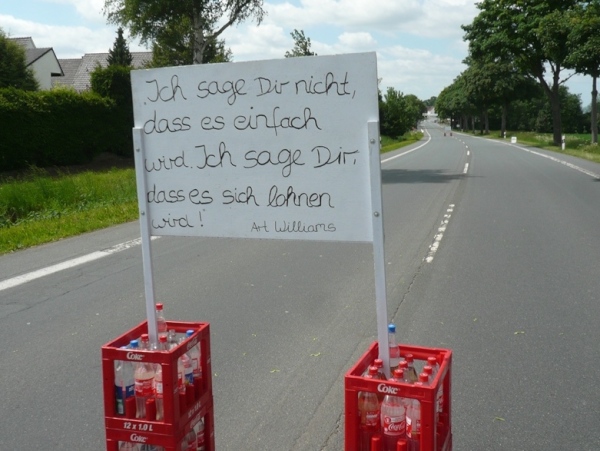 „Ich sage Dir nicht,
dass es einfach
wird. Ich sage Dir,
dass es sich lohnen
wird!"
Art Williams
Coke
12 x 1.0 L
Coke
Coke
Coca-Cola